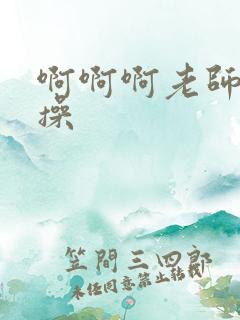 啊啊啊老師
操
笠間三四郎
未经同意禁止转载